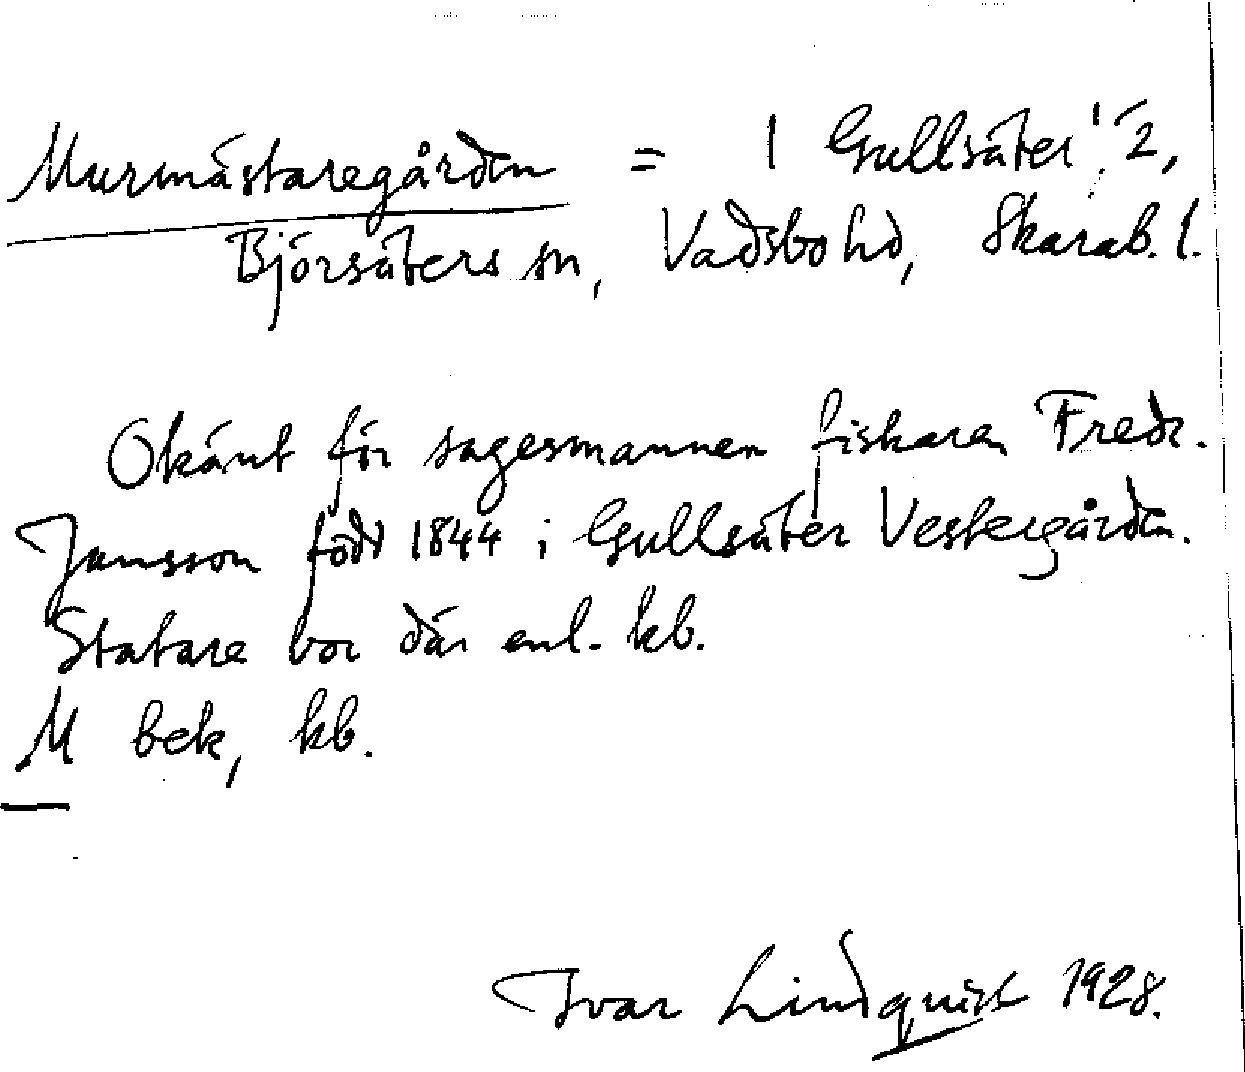 Murmästaregården = 1 Gullsäter 1/2,
Björsäters sn, Vadsbo hd, Skarab. l.
Okänt för sagesmannen fiskaren Fredr.
Jansson född 1844 i Gullsäter Vestergården.
Statare bor där enl. kb.
M bek, kb.
Ivar Lindquist 1928.